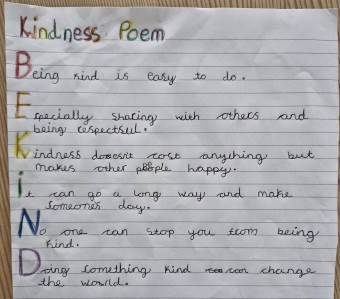 Kindness Poem
Being kind is easy to do.
Especially sharing with others and
being respectful.
Kindness doesn't cost anything but
makes other people happy.
it can go a long way and make
someones day.
No one can stop you from being
kind.
Doing something kind can change
the world.